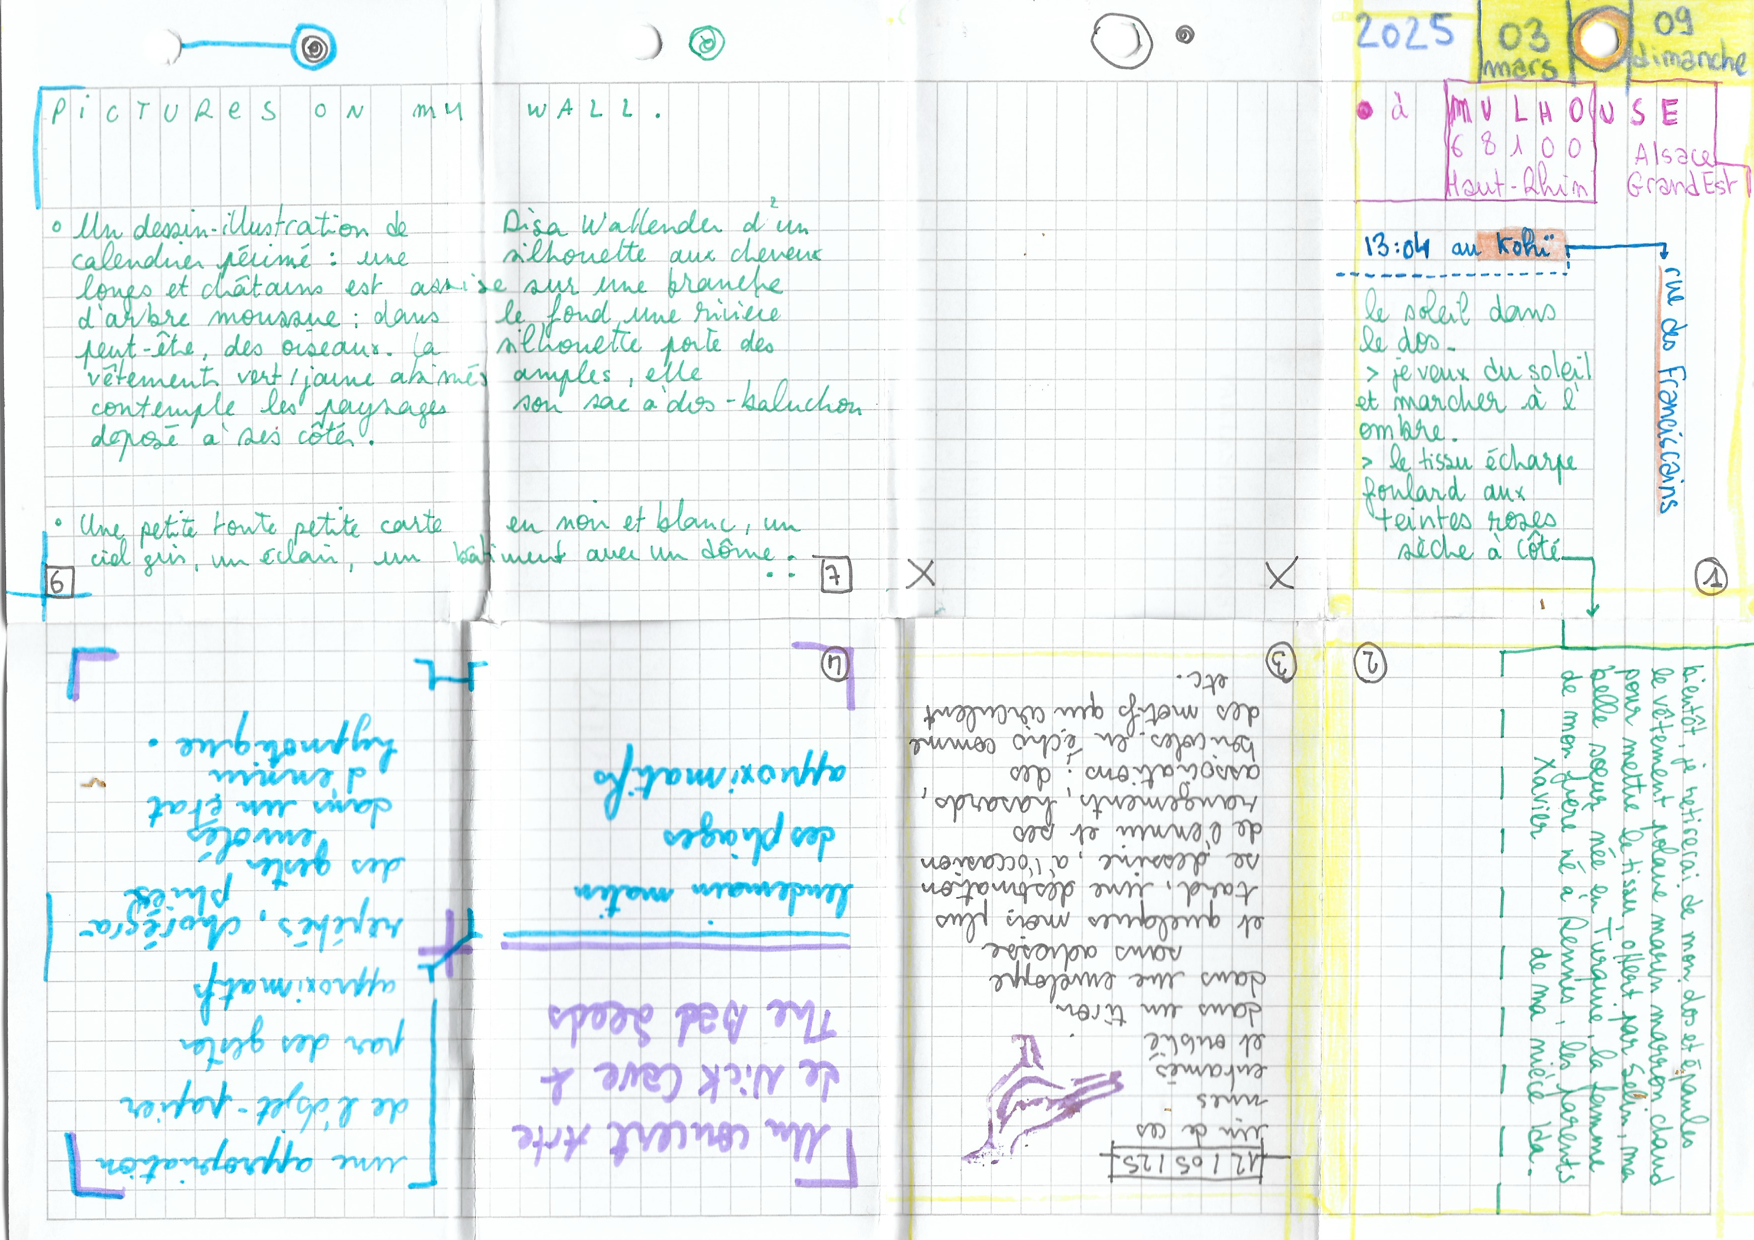 2025
03
mars
09
dimanche
• à MULHOUSE
68100
Haut-Rhin
Alsace
Grand Est
13:04 au Kohï
rue des Franciscains
le soleil dans
le dos.
> je veux du soleil
et marcher à l'
ombre.
> le tissu écharpe
foulard aux
teintes roses
sèche à côté
1
2
bientôt, je retirerai de mon dos et épaules
le vêtement polaire marin marron chaud
pour mettre le tissu, offert par Selin, ma
belle soeur née en Turquie, la femme
de mon frère né à Rennes, les parents
Xavier de ma nièce Ida.
3
12/05/25
un de ces
mes
entamés
et oublié
dans un tiroir
dans une enveloppe
sans adresse
et quelques mois plus
tard, une destination
se dessine, à l'occasion
de l'ennui et ses
rangements, hasards,
associations : des
bricoles en écho comme
des motifs qui circulent
etc.
4
Un concert Arte
de Nick Cave &
The Bad Seeds
lendemain matin
des pliages
approximatifs
une appropriation
de l'objet-papier
par des gestes
approximatifs
répétés, chorégra-
phiés
des gestes
envolés
dans un état
d'ennui
hypnotique.
PICTURES ON MY WALL.
• Un dessin-illustration de Disa Wallender d'un
2
calendrier périmé : une silhouette aux cheveux
longs et châtains est assise sur une branche
d'arbre moussue ; dans le fond une rivière
peut-être, des oiseaux. La silhouette porte des
vêtements vert/jaune abîmés amples, elle
contemple les paysages son sac à dos-baluchon
déposé à ses côtés.
• Une petite toute petite carte en noir et blanc, un
ciel gris, un éclair, un bâtiment avec un dôme.
6
7
X
X